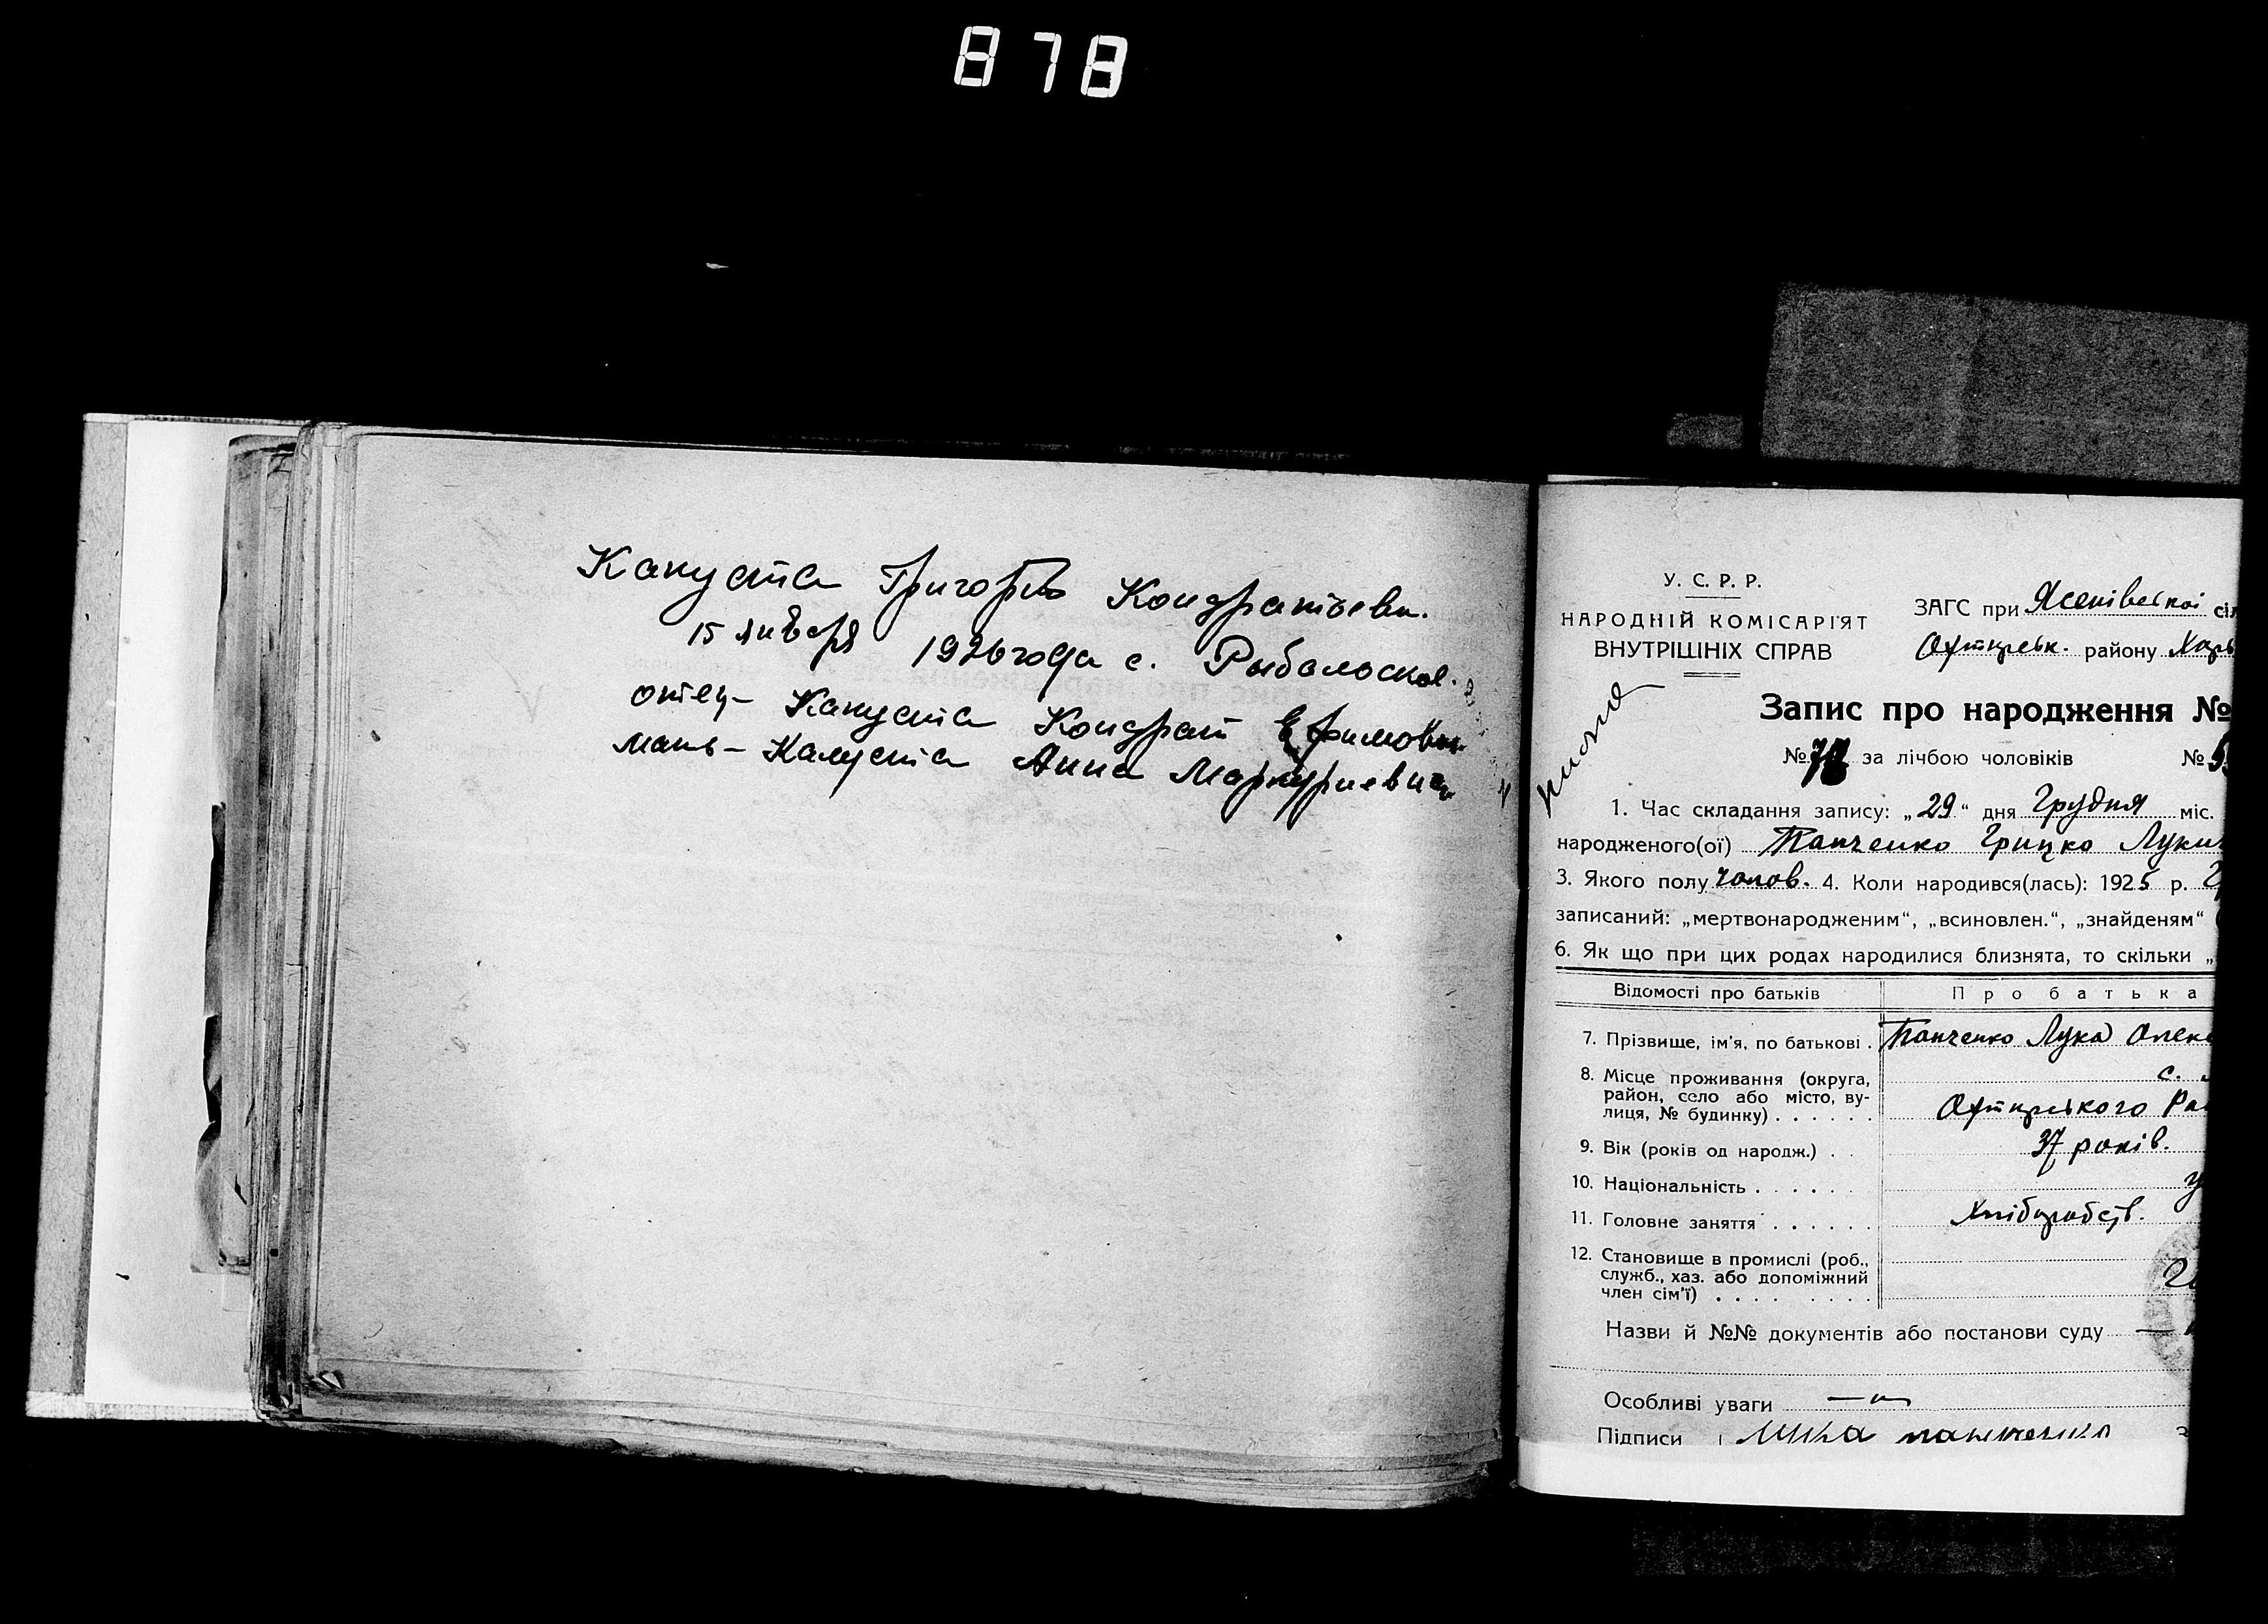 878
Капуста Григорий Кондратьеви.
15 января 1926 года с. Рыбалоское.
отец- Капуста Кондрат Ефимович
мать- Капуста Анна Маркуриевна
У. С. Р. Р.
НАРОДНІЙ КОМІСАРІЯТ
ВНУТРІШНІХ СПРАВ
ЗАГС при Ясенівської сіл
Охтирськ. району Харь
Запис про народження №
№ за лічбою чоловіків №
1. Час складання запису: „29“ дня Грудня міс.
народженого(ої) Панченко Грицко Луки
3. Якого полу чолов. 4. Коли народився(лась): 1925 р.
записаний: „мертвонародженим“, „всиновлен.“, „знайденям“
6. Як що при цих родах народилися близнята, то скільки „
Відомості про батьків Про батька
7. Прізвище, ім'я, по батькові . Панченко Лука Олек
8. Місце проживання (округа, с.
район, село або місто, ву-
лиця, № будинку) . . . . . . Охтирського Ра
9. Вік (років од народж.) . . 37 років.
10. Національність . . . . . . У
11. Головне заняття . . . . . . Хліборобств.
12. Становище в промислі (роб.,
служб., хаз. або допоміжний
член сім'ї) . . . . . . . . Го
Назви й №№ документів або постанови суду —
Особливі уваги
Підписи